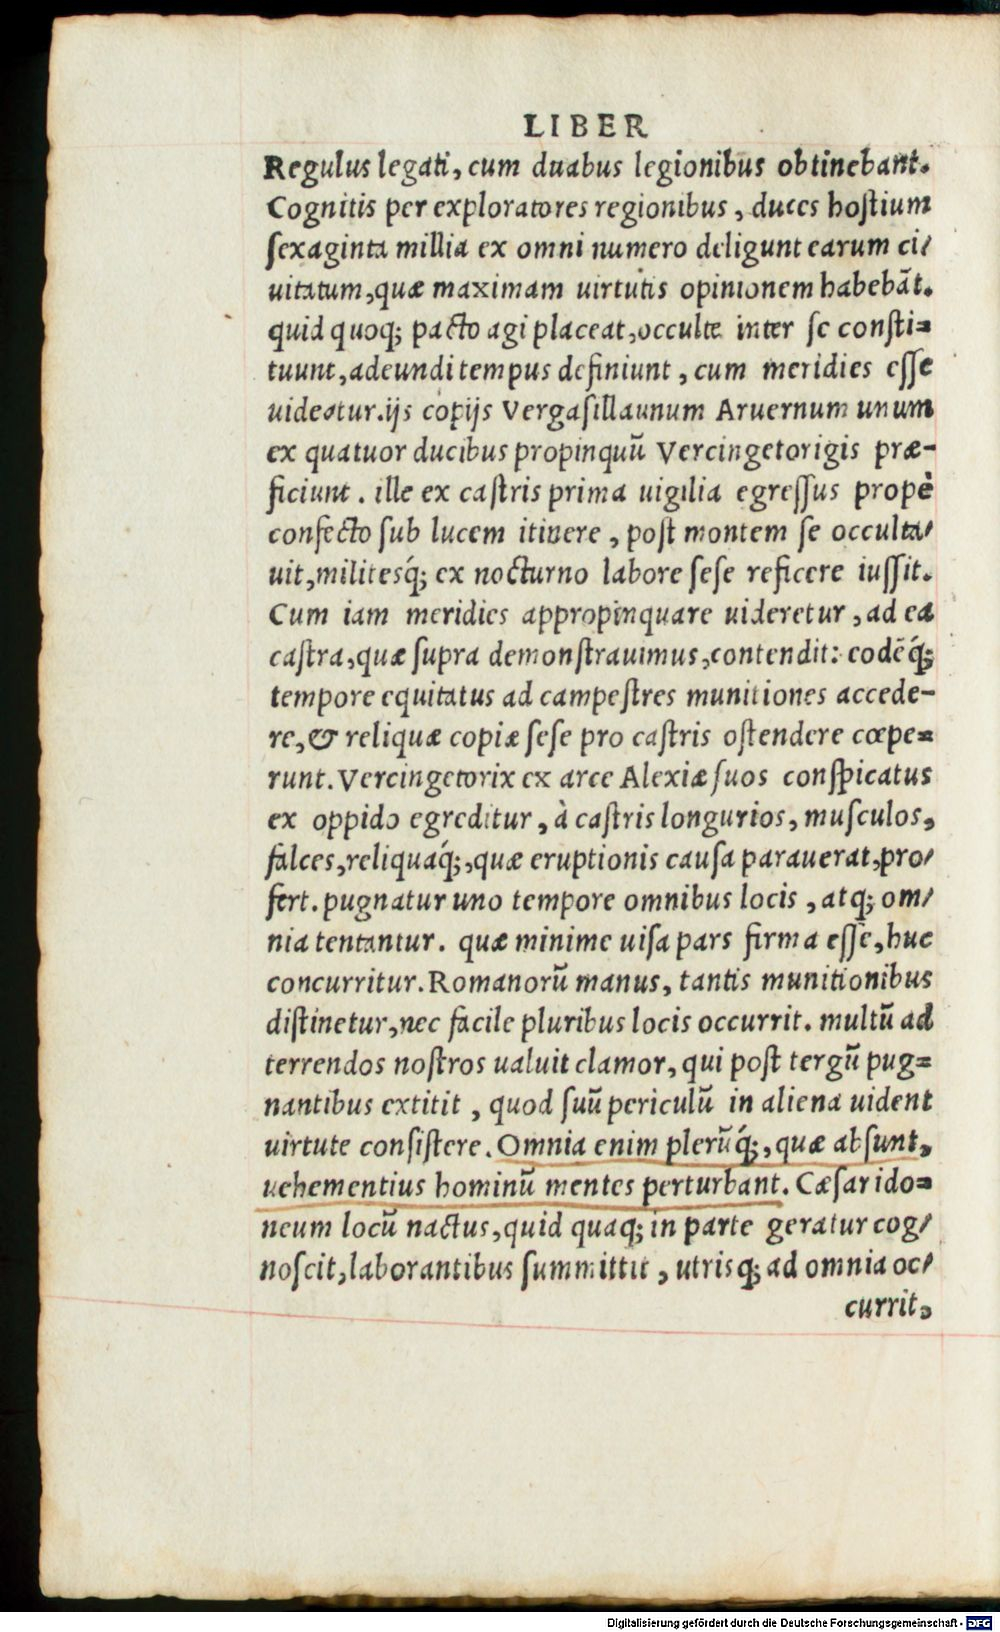 LIBER
Regulus legati, cum duabus legionibus obtinebant.
Cognitis per exploratores regionibus, duces hoſtium
ſexaginta millia ex omni numero deligunt earum ci/
uitatum, quæ maximam uirtutis opinionem habebāt.
quid quoq; pacto agi placeat, occulte inter ſe conſti=
tuunt, adeundi tempus definiunt, cum meridies eſſe
uideatur. ijs copijs Vergaſillaunum Aruernum unum
ex quatuor ducibus propinquū Vercingetorigis præ-
ficiunt. ille ex caſtris prima uigilia egreſſus propè
confecto ſub lucem itinere, poſt montem ſe occulta/
uit, militesq́; ex nocturno labore ſeſe reficere iuſſit.
Cum iam meridies appropinquare uideretur, ad ea
caſtra, quæ ſupra demonſtrauimus, contendit: eodēq́;
tempore equitatus ad campeſtres munitiones accede-
re, & reliquæ copiæ ſeſe pro caſtris oſtendere cœpe=
runt. Vercingetorix ex arce Alexiæ ſuos conſpicatus
ex oppido egreditur, à caſtris longurios, muſculos,
falces, reliquaq́;, quæ eruptionis cauſa parauerat, pro/
fert. pugnatur uno tempore omnibus locis, atq; om/
nia tentantur. quæ minime uiſa pars firma eſſe, huc
concurritur. Romanorū manus, tantis munitionibus
diſtinetur, nec facile pluribus locis occurrit. multū ad
terrendos noſtros ualuit clamor, qui poſt tergū pug=
nantibus extitit, quod ſuū periculū in aliena uident
uirtute conſiſtere. Omnia enim plerūq́;, quæ abſunt,
uehementius hominū mentes perturbant. Cæſar ido=
neum locū nactus, quid quaq; in parte geratur cog/
noſcit, laborantibus ſummittit, utrisq; ad omnia oc/
currit,
Digitalisierung gefördert durch die Deutsche Forschungsgemeinschaft - DFG